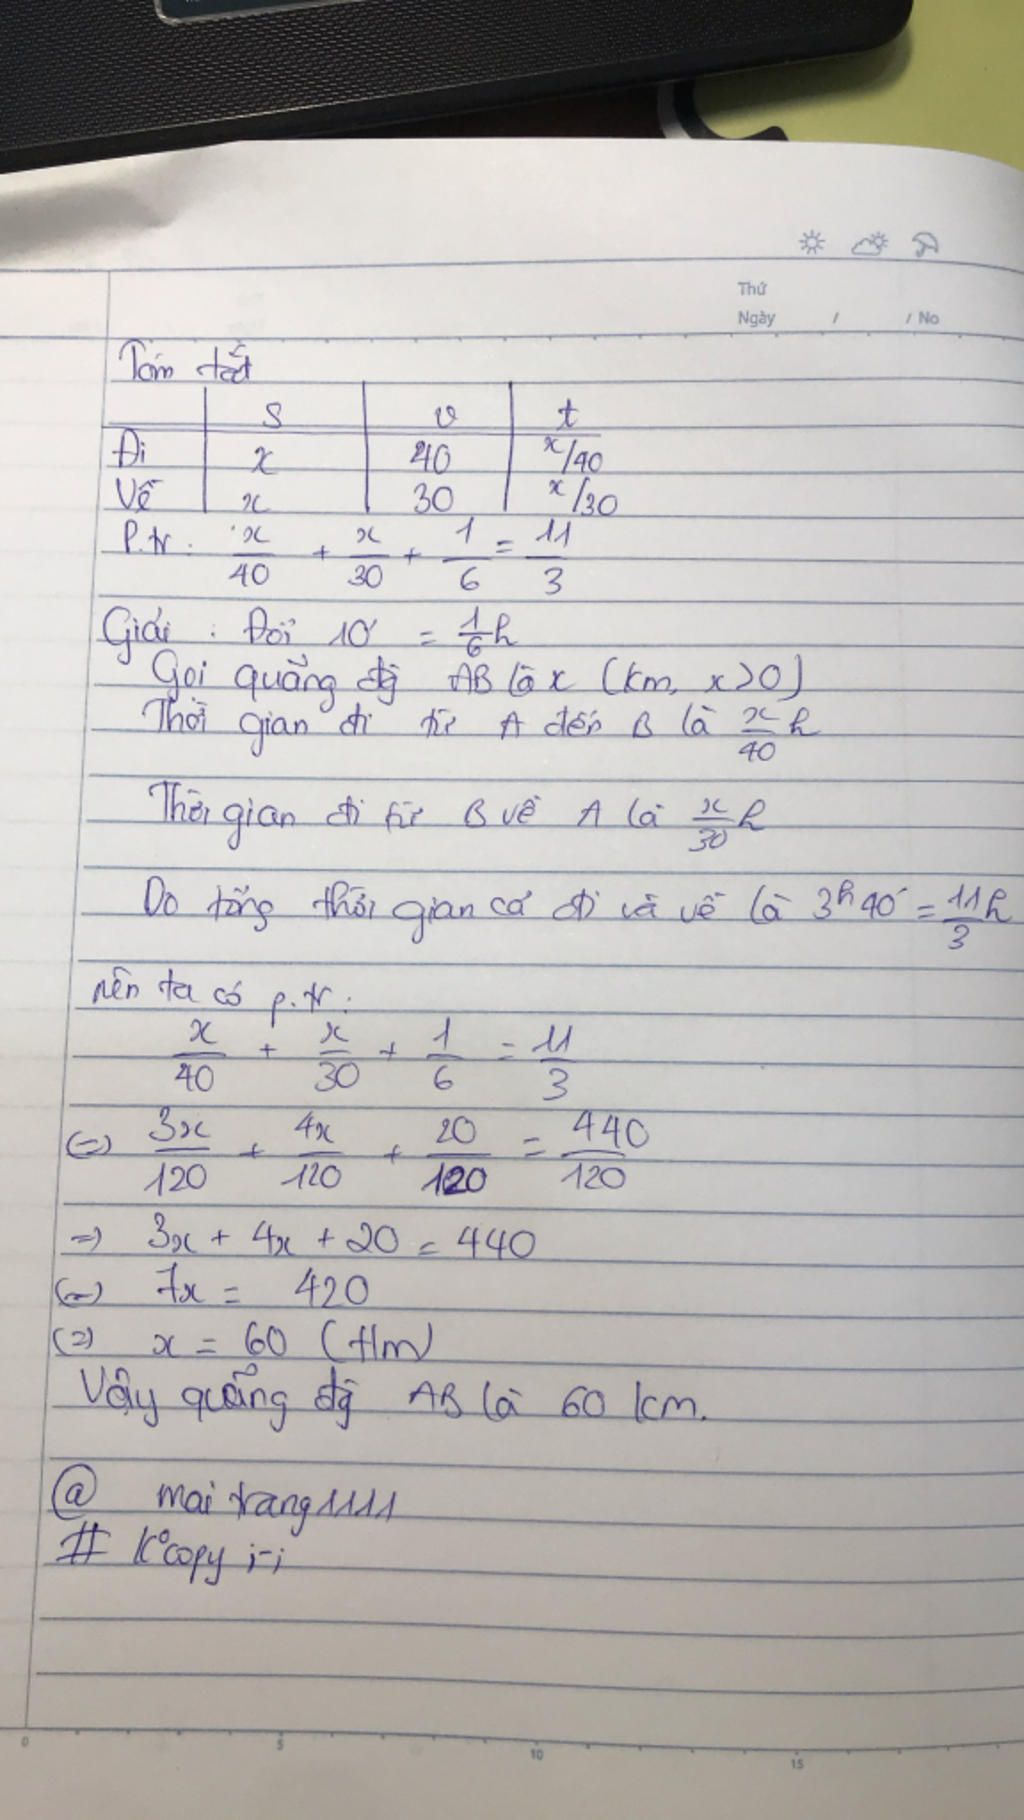 Thứ
Ngày / / No
Tóm tắt
S v t
Đi x 40 x/40
Về x 30 x/30
P.tr: x/40 + x/30 + 1/6 = 11/3
Giải: Đổi 10' = 1/6 h
Gọi quãng đg AB là x (km, x>0)
Thời gian đi từ A đến B là x/40 h
Thời gian đi từ B về A là x/30 h
Do tổng thời gian cả đi và về là 3h40' = 11/3 h
nên ta có p.tr:
x/40 + x/30 + 1/6 = 11/3
(=) 3x/120 + 4x/120 + 20/120 = 440/120
=) 3x + 4x + 20 = 440
(=) 7x = 420
(=) x = 60 (t/m)
Vậy quãng đg AB là 60 km.
@ mai trang1111
# K° copy i-i
0 5 10 15